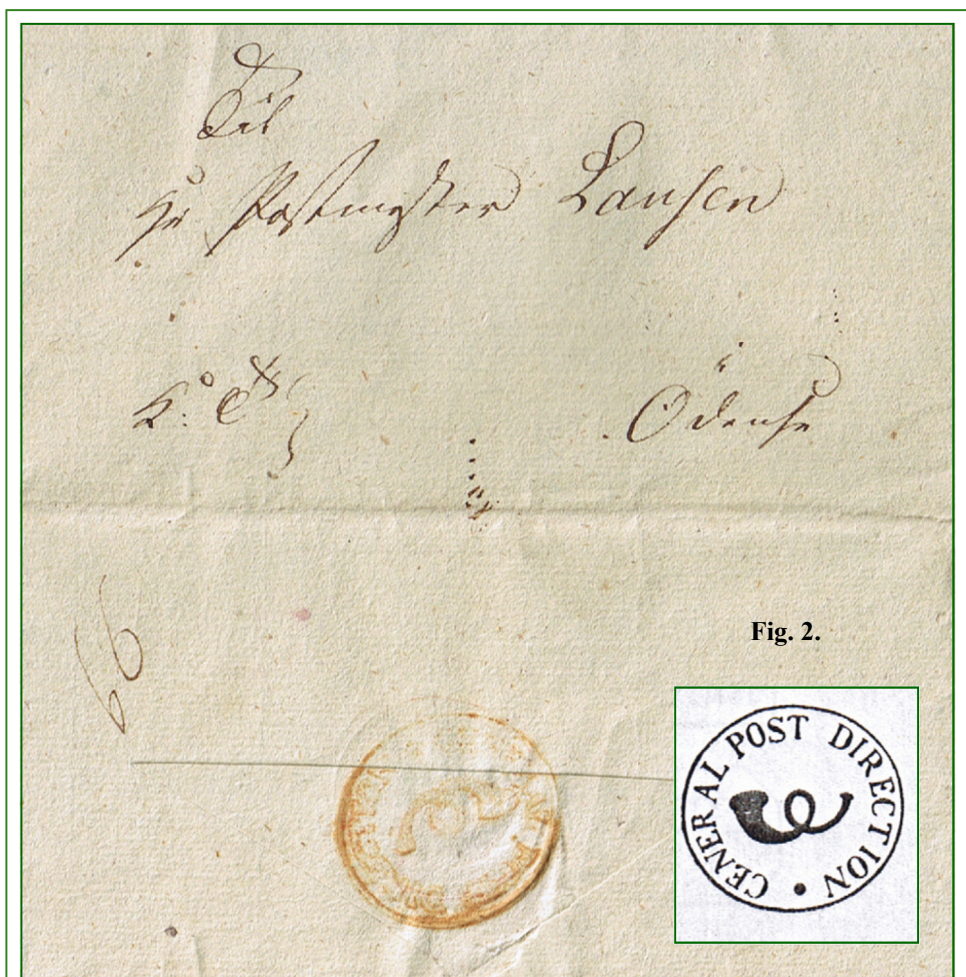 Til
Hr Postmester Lausen
Odense
Fig. 2.
CENERAL POST DIRECTION